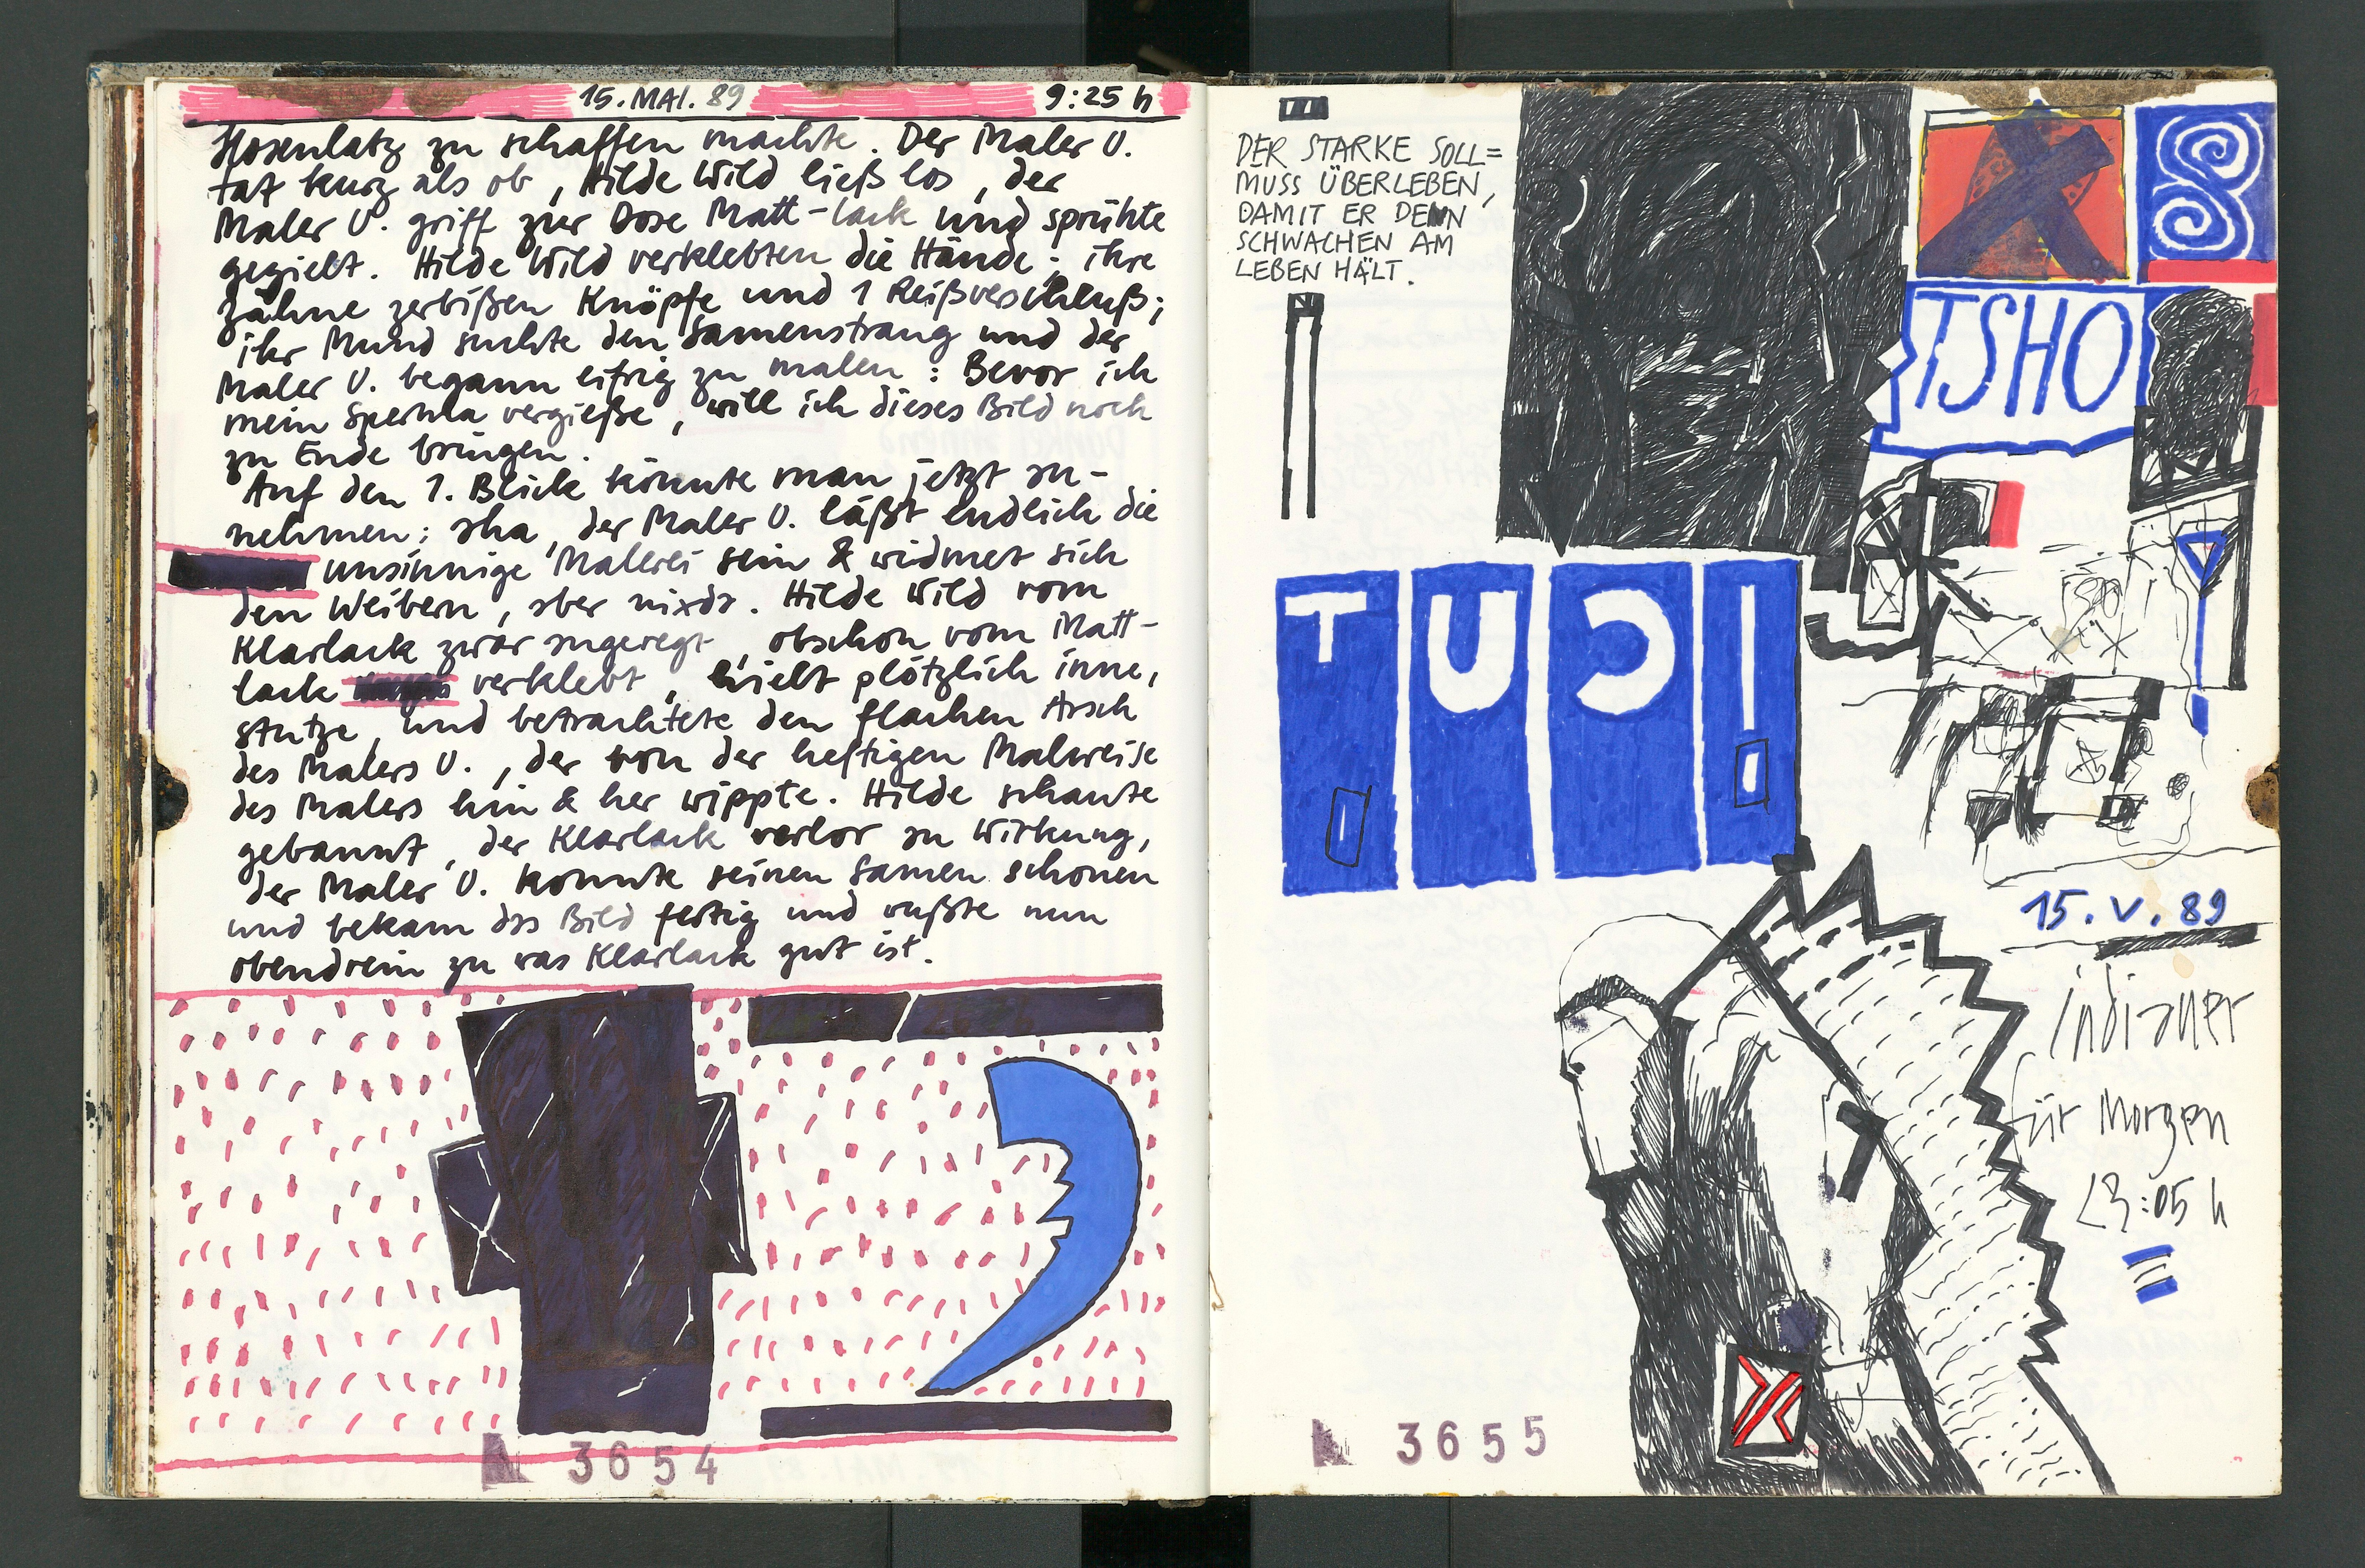 15. MAI. 89
9:25 h
Hosenlatz zu schaffen machte. Der Maler U.
tat kurz als ob, Hilde Wild ließ los, der
Maler U. griff zur Dose Matt-lack und sprühte
gezielt. Hilde Wild verklebten die Hände; ihre
Zähne zerbißen Knöpfe und 1 Reißverschluß;
ihr Mund suchte den Samenstrang und der
Maler U. begann eifrig zu malen: Bevor ich
mein Sperma vergieße, will ich dieses Bild noch
zu Ende bringen.
Auf den 1. Blick könnte man jetzt an-
nehmen: aha, der Maler U. läßt endlich die
unsinnige Malerei sein & widmet sich
den Weibern, aber nixda. Hilde Wild vom
Klarlack zwar angeregt, obschon vom Matt-
lack verklebt, hielt plötzlich inne,
stutze, und betrachtete den flachen Arsch
des Malers U., der von der heftigen Malweise
des Malers hin & her wippte. Hilde schaute
gebannt, der Klarlack verlor an Wirkung,
der Maler U. konnte seinen Samen schonen
und bekam das Bild fertig und wußte nun
obendrein zu was Klarlack gut ist.
N 3654
DER STARKE SOLL=
MUSS ÜBERLEBEN,
DAMIT ER DENN
SCHWACHEN AM
LEBEN HÄLT.
TSHO
15. V. 89
indianer
für Morgen
23:05 h
N 3655